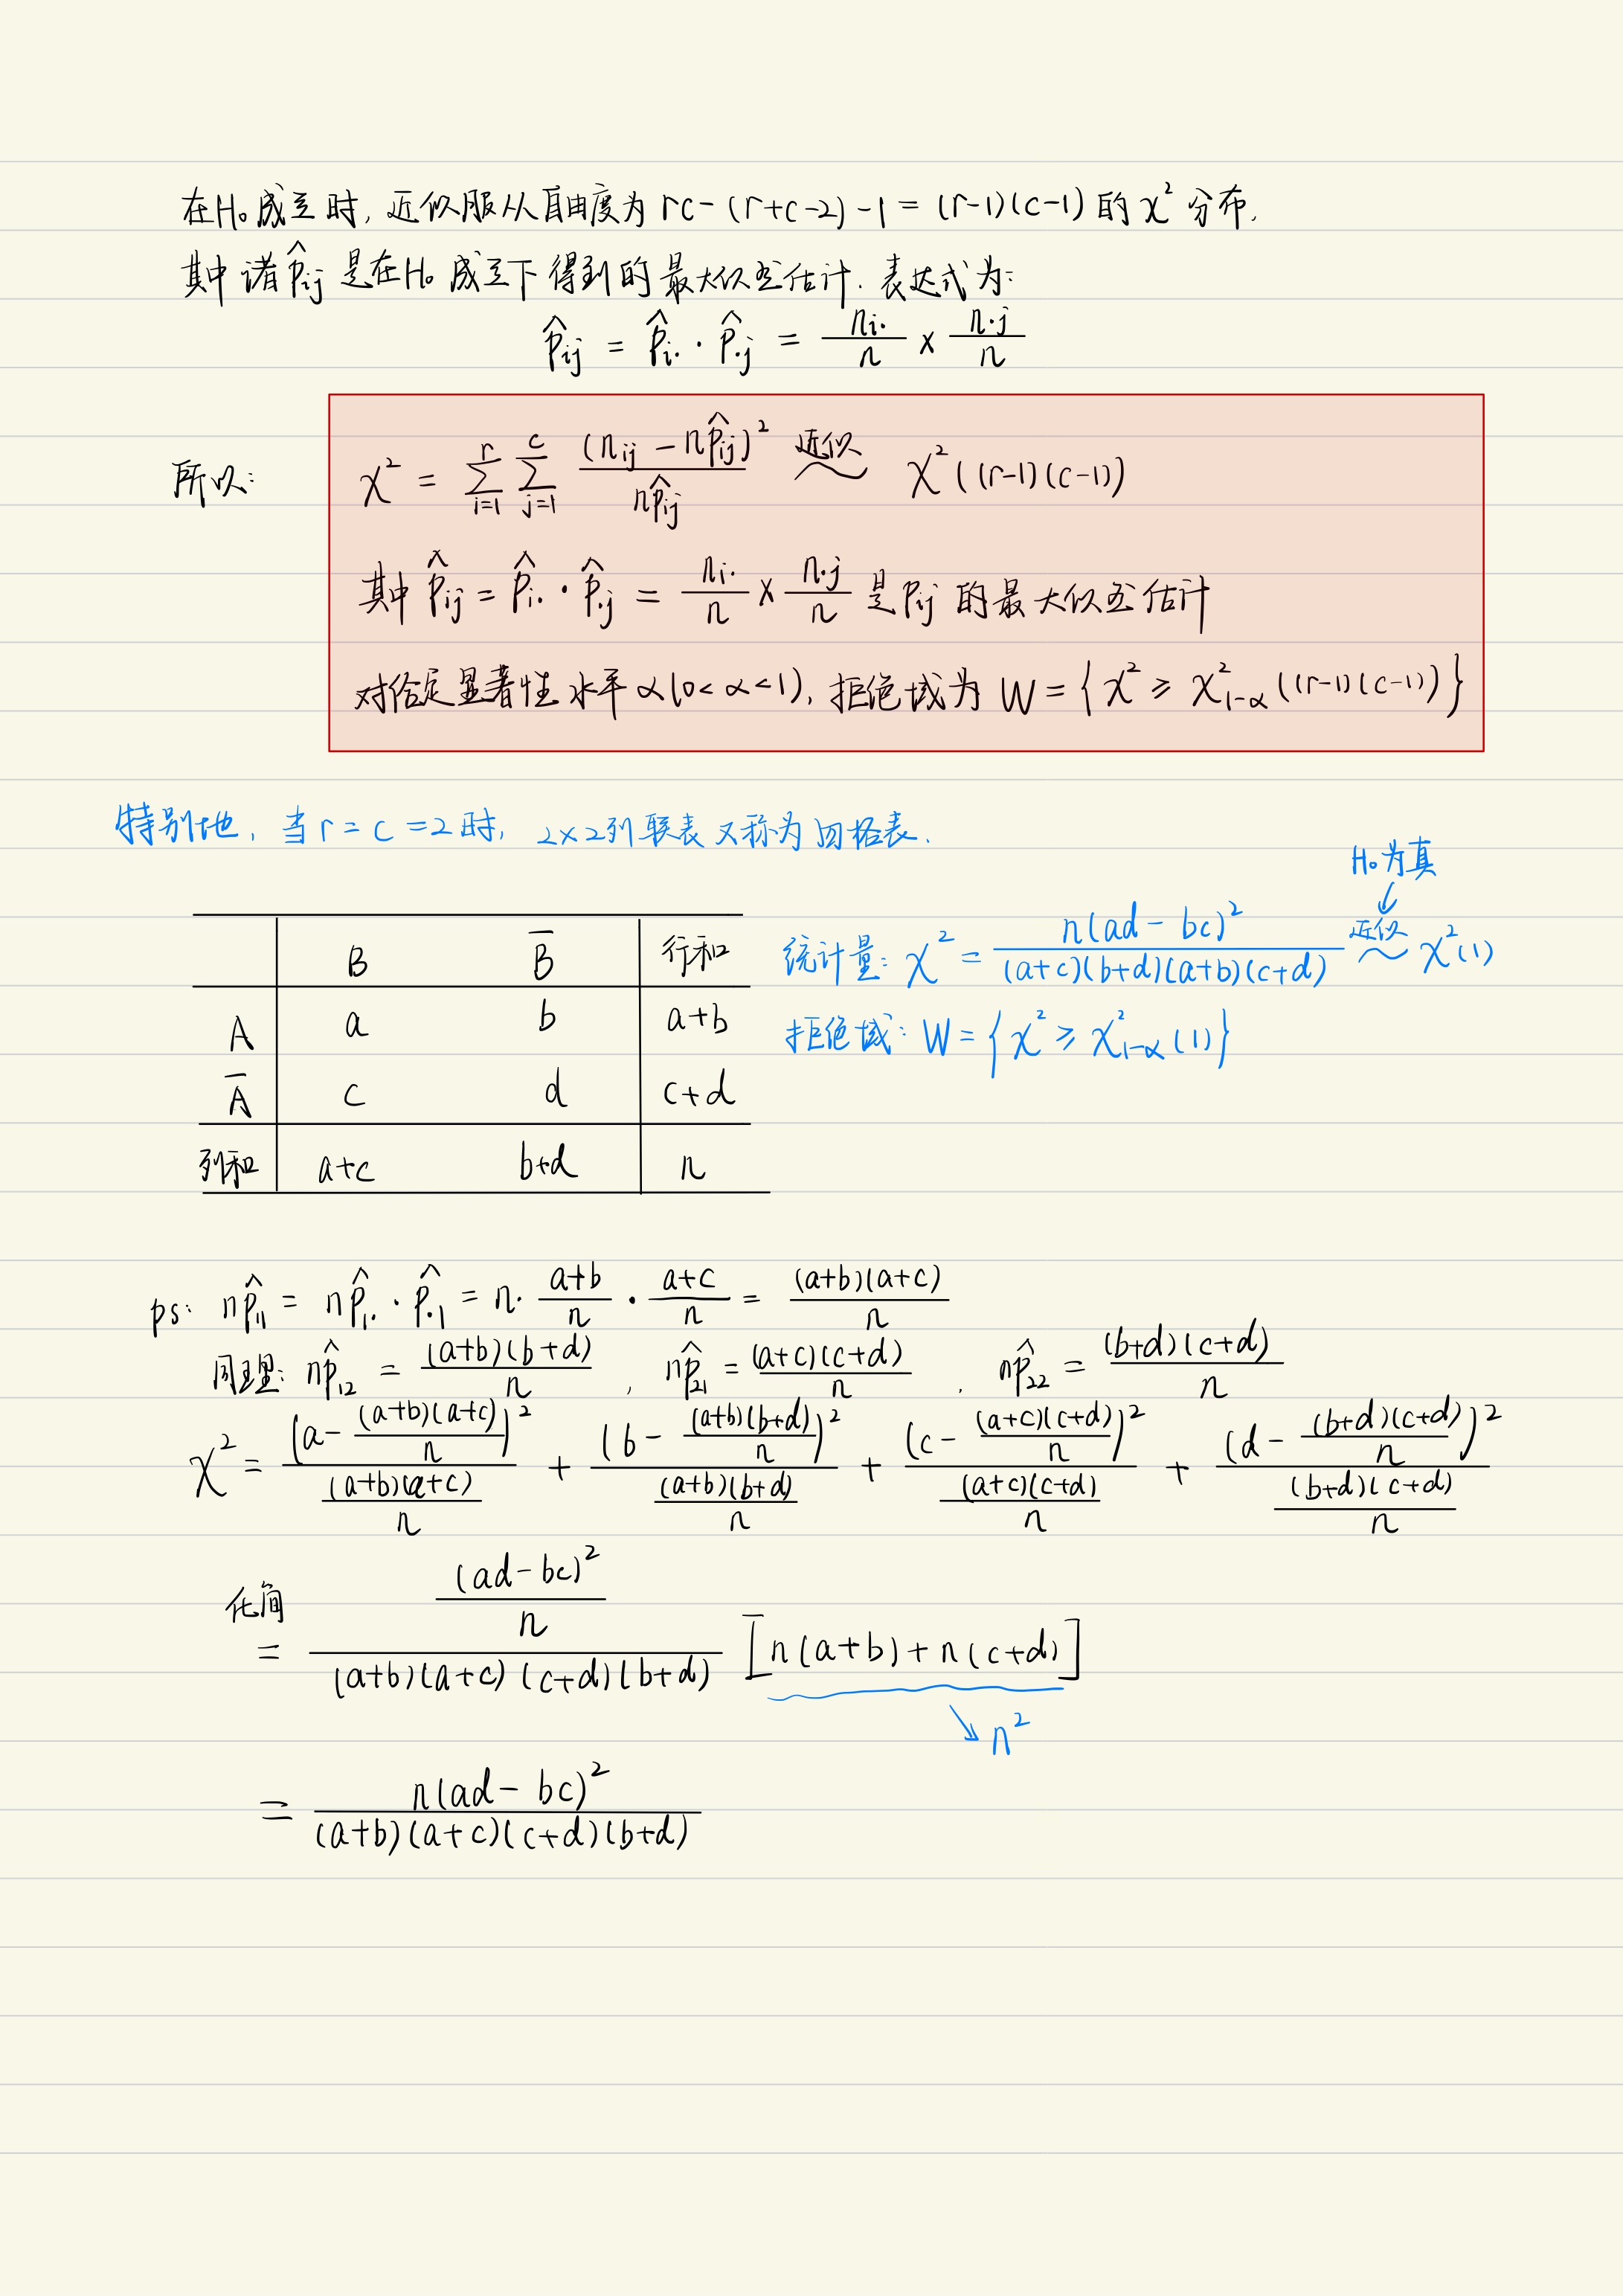 在H₀成立时, 近似服从自由度为 rc-(r+c-2)-1 = (r-1)(c-1) 的 χ² 分布,
其中诸 p̂ij 是在H₀ 成立下得到的最大似然估计. 表达式为:
p̂ij = p̂i. · p̂.j = ni./n × n.j/n
所以: χ² = Σ(i=1→r) Σ(j=1→c) (nij - np̂ij)²/np̂ij 近似 ~ χ²((r-1)(c-1))
其中 p̂ij = p̂i. · p̂.j = ni./n × n.j/n 是 pij 的最大似然估计
对给定显著性水平 α(0<α<1), 拒绝域为 W = { χ² ≥ χ²₁₋α((r-1)(c-1)) }
特别地, 当 r = c = 2 时, 2×2列联表又称为四格表.
H₀为真
B B̄ 行和
统计量: χ² = n(ad-bc)²/(a+c)(b+d)(a+b)(c+d) 近似 ~ χ²(1)
A a b a+b
拒绝域: W = { χ² ≥ χ²₁₋α(1) }
Ā c d c+d
列和 a+c b+d n
ps: np̂₁₁ = np̂₁. · p̂.₁ = n · a+b/n · a+c/n = (a+b)(a+c)/n
同理: np̂₁₂ = (a+b)(b+d)/n , np̂₂₁ = (a+c)(c+d)/n , np̂₂₂ = (b+d)(c+d)/n
χ² = (a - (a+b)(a+c)/n)² / (a+b)(a+c)/n + (b - (a+b)(b+d)/n)² / (a+b)(b+d)/n + (c - (a+c)(c+d)/n)² / (a+c)(c+d)/n + (d - (b+d)(c+d)/n)² / (b+d)(c+d)/n
化简
= (ad-bc)²/n / (a+b)(a+c)(c+d)(b+d) [n(a+b)+n(c+d)]
↘ n²
= n(ad-bc)² / (a+b)(a+c)(c+d)(b+d)